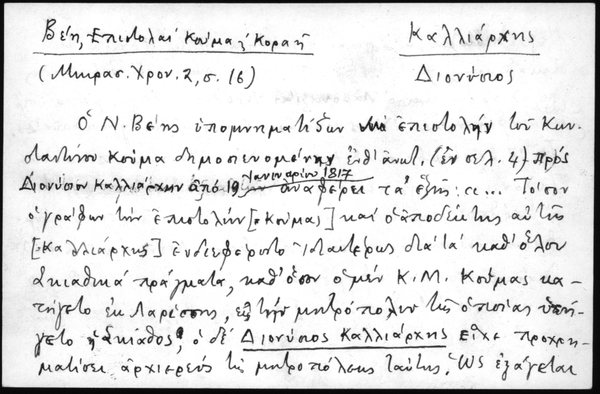 Βέη, Επιστολαί Κούμα κ' Κοραή
Καλλιάρχης
(Μικρασ. Χρον. 2, σ. 16)
Διονύσιος
Ὁ Ν. Βέης ὑπομνηματίζων ἐπιστολήν τοῦ Κων-
σταντίνου Κούμα δημοσιευομένην ἐνθ' ἀνωτ. (ἐν σελ. 4) πρός
Διονύσιον Καλλιάρχην ἀπό 19 Ἰανουαρίου 1817 ἀναφέρει τά ἑξῆς: «... Τόσον
ὁ γράφων τήν ἐπιστολήν [=Κούμας] καί ὁ ἀποδέκτης αὐτῆς
[=Καλλιάρχης] ἐνδιεφέροντο ἰδιαιτέρως διά τά καθ' ὅλου
Σκιαθικά πράγματα, καθ' ὅσον ὁ μέν Κ. Μ. Κούμας κα-
τήγετο ἐκ Λαρίσσης, εἰς τήν μητρόπολιν τῆς ὁποίας ὑπή-
γετο ἡ Σκίαθος, ὁ δέ Διονύσιος Καλλιάρχης εἶχε προχρη-
ματίσει ἀρχιερεύς τῆς μητροπόλεως ταύτης. Ὡς ἐξάγεται